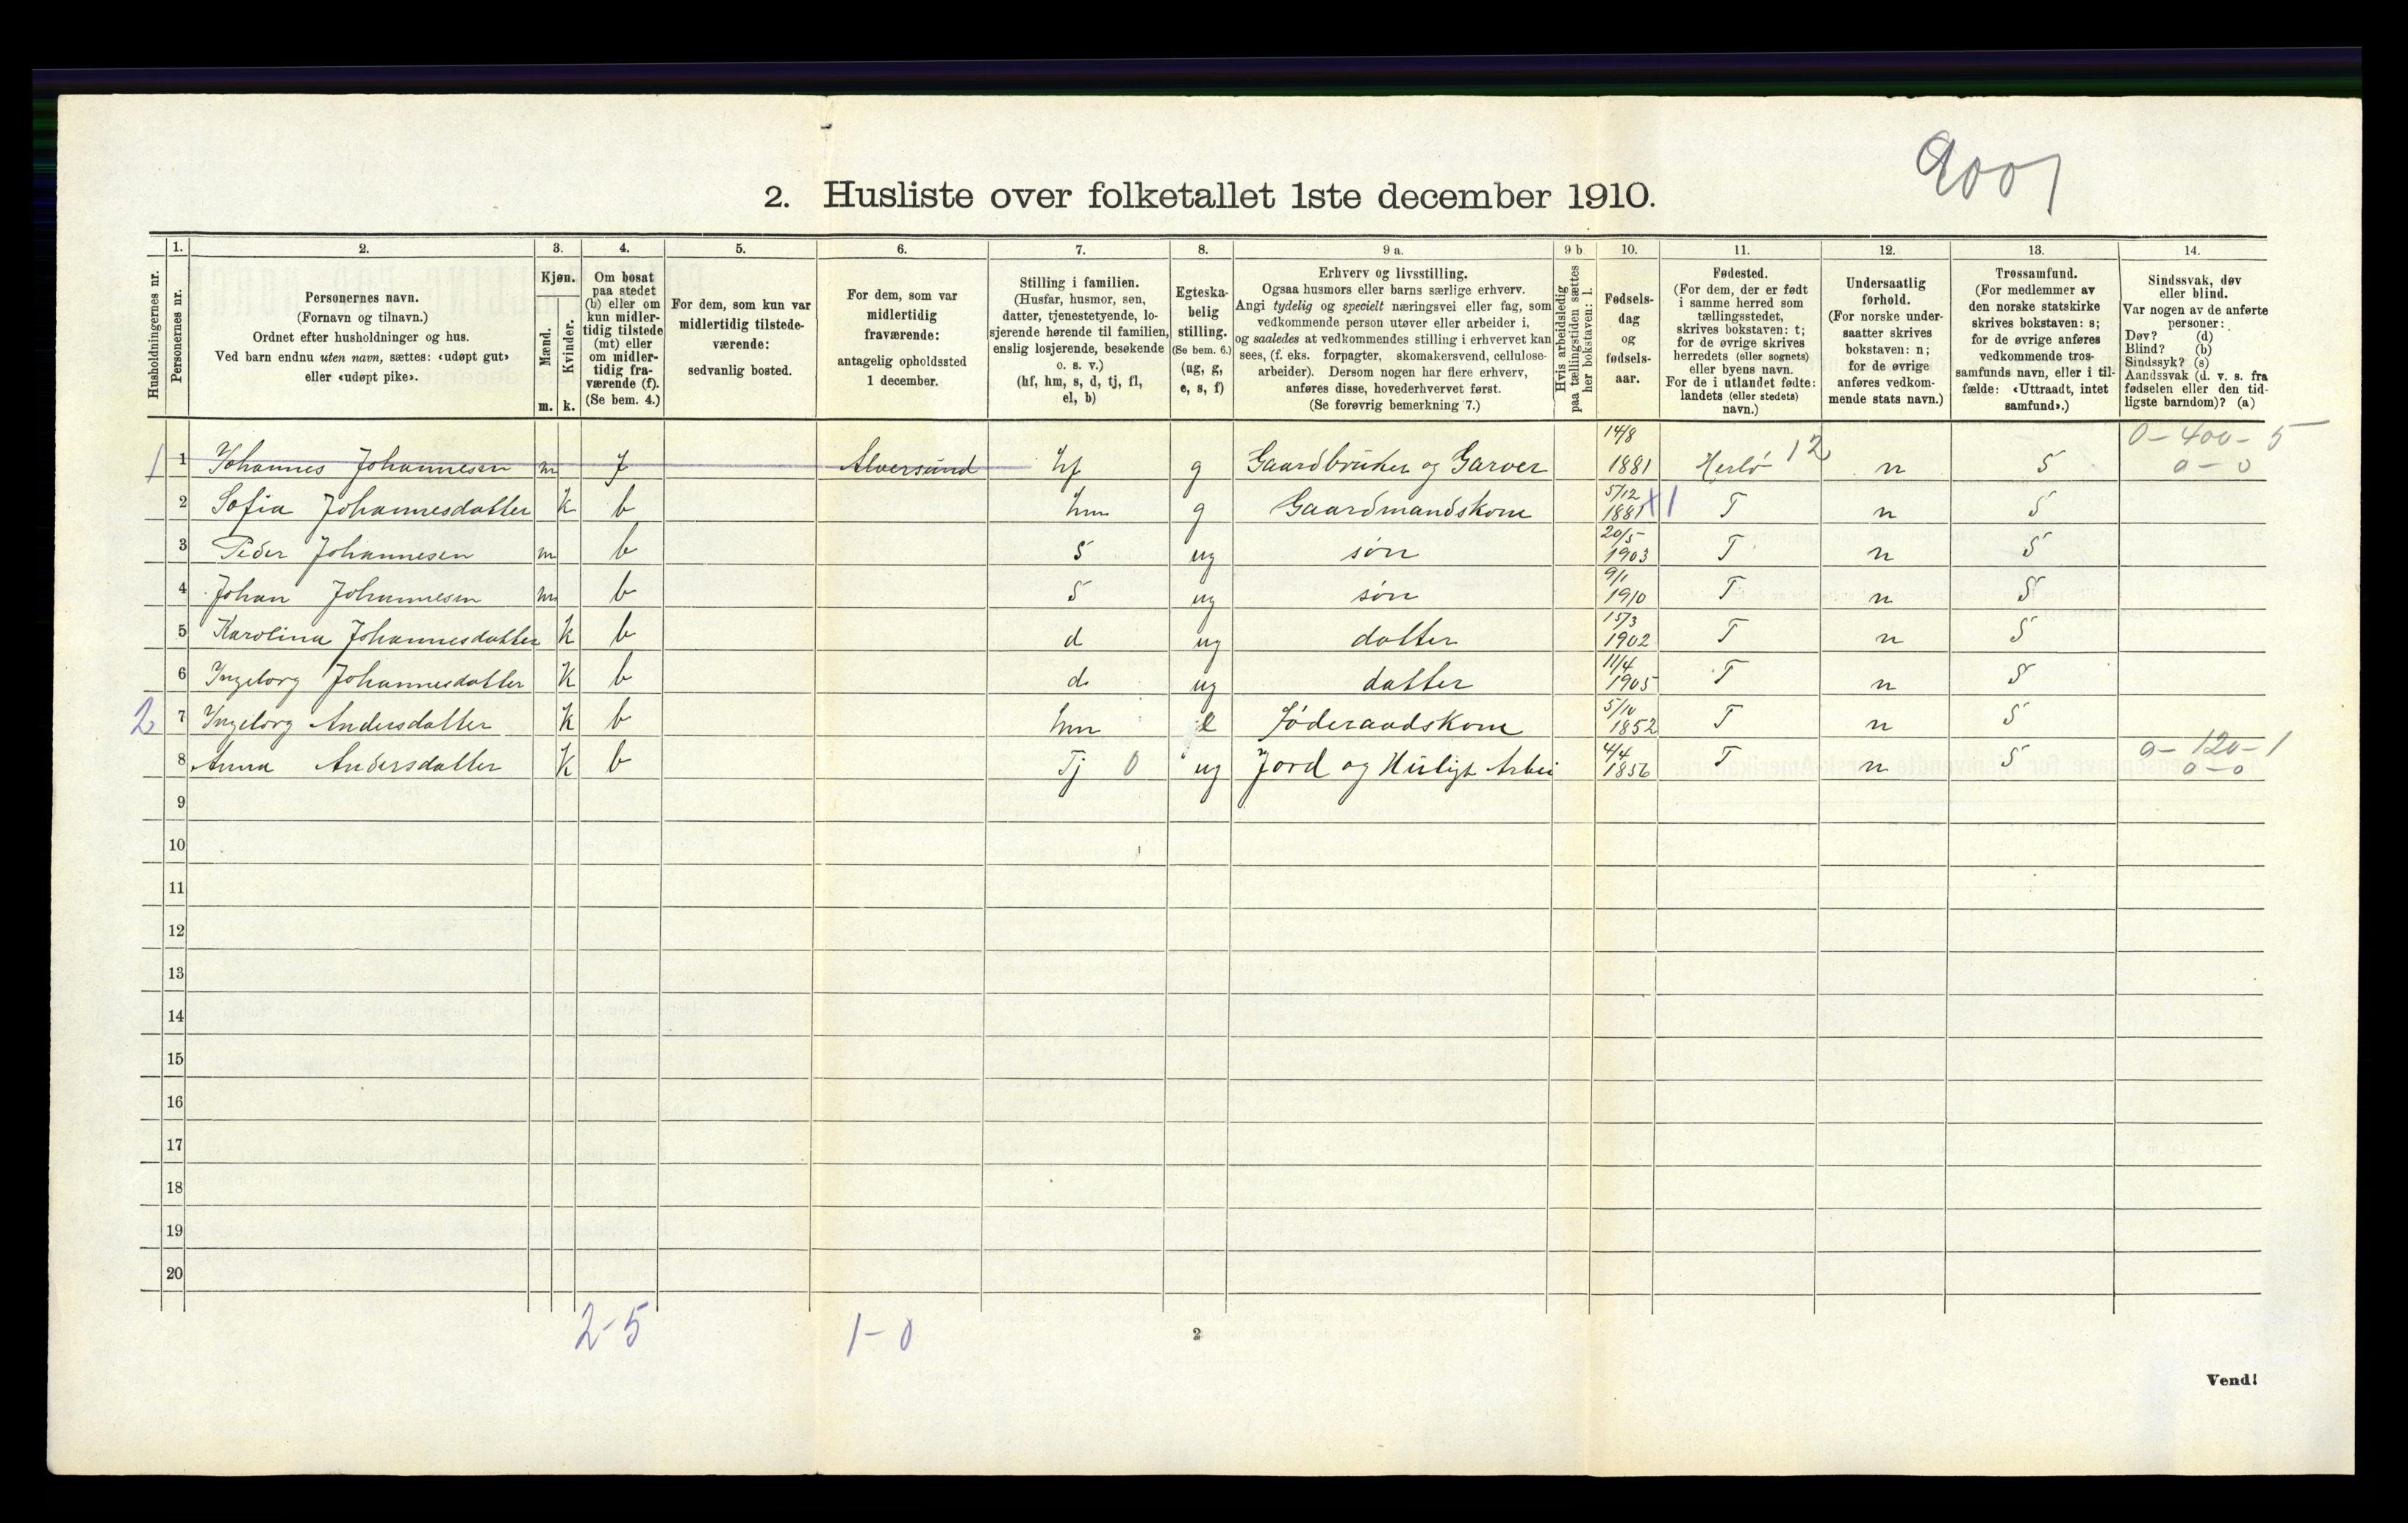 9001
2. Husliste over folketallet 1ste december 1910.
Husholdningernes nr.
1. Personernes nr.
2. Personernes navn. (Fornavn og tilnavn.) Ordnet efter husholdninger og hus. Ved barn endnu uten navn, sættes: «udøpt gut» eller «udøpt pike».
3. Kjøn. Mænd. m. Kvinder. k.
4. Om bosat paa stedet (b) eller om kun midlertidig tilstede (mt) eller om midlertidig fraværende (f). (Se bem. 4.)
5. For dem, som kun var midlertidig tilstedeværende: sedvanlig bosted.
6. For dem, som var midlertidig fraværende: antagelig opholdssted 1 december.
7. Stilling i familien. (Husfar, husmor, søn, datter, tjenestetyende, losjerende hørende til familien, enslig losjerende, besøkende o. s. v.) (hf, hm, s, d, tj, fl, el, b)
8. Egteskabelig stilling. (Se bem. 6.) (ug, g, e, s, f)
9 a. Erhverv og livsstilling. Ogsaa husmors eller barns særlige erhverv. Angi tydelig og specielt næringsvei eller fag, som vedkommende person utøver eller arbeider i, og saaledes at vedkommendes stilling i erhvervet kan sees, (f. eks. forpagter, skomakersvend, cellulosearbeider). Dersom nogen har flere erhverv, anføres disse, hovederhvervet først. (Se forøvrig bemerkning 7.)
9 b. Hvis arbeidsledig paa tællingstiden sættes her bokstaven: l.
10. Fødselsdag og fødselsaar.
11. Fødested. (For dem, der er født i samme herred som tællingsstedet, skrives bokstaven: t; for de øvrige skrives herredets (eller sognets) eller byens navn. For de i utlandet fødte: landets (eller stedets) navn.)
12. Undersaatlig forhold. (For norske undersaatter skrives bokstaven: n; for de øvrige anføres vedkommende stats navn.)
13. Trossamfund. (For medlemmer av den norske statskirke skrives bokstaven: s; for de øvrige anføres vedkommende trossamfunds navn, eller i tilfælde: «Uttraadt, intet samfund».)
14. Sindssvak, døv eller blind. Var nogen av de anførte personer: Døv? (d) Blind? (b) Sindssyk? (s) Aandssvak (d. v. s. fra fødselen eller den tidligste barndom)? (a)
1 1 Johannes Johannesen m f Alversund hf g Gaardbruker og Garver 14/8 1881 Herlö 12 n S 0-400-5 0-0
2 Sofia Johannesdatter k b hm g Gaardmandskone 5/12 1881 X1 T n S
3 Peder Johannesen m b S ug søn 20/5 1903 T n S
4 Johan Johannesen m b S ug søn 9/1 1910 T n S
5 Karolina Johannesdatter k b d ug datter 15/3 1902 T n S
6 Ingeborg Johannesdatter k b d ug datter 11/4 1905 T n S
2 7 Ingeborg Andersdatter k b hm e Føderaadskone 5/10 1852 T n S
8 Anna Andersdatter k b Tj 0 ug Jord og Husligt Arbei 4/4 1856 T n S 0-120-1 0-0
9
10
11
12
13
14
15
16
17
18
19
20
2-5 1-0
2
Vend!